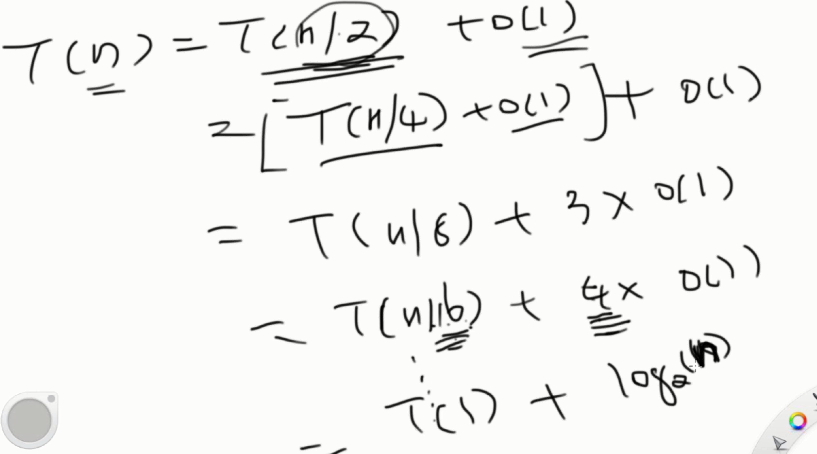 T(n) = T(n/2) + O(1)
= [T(n/4) + O(1)] + O(1)
= T(n/8) + 3 × O(1)
= T(n/16) + 4 × O(1)
= T(1) + log₂(n)